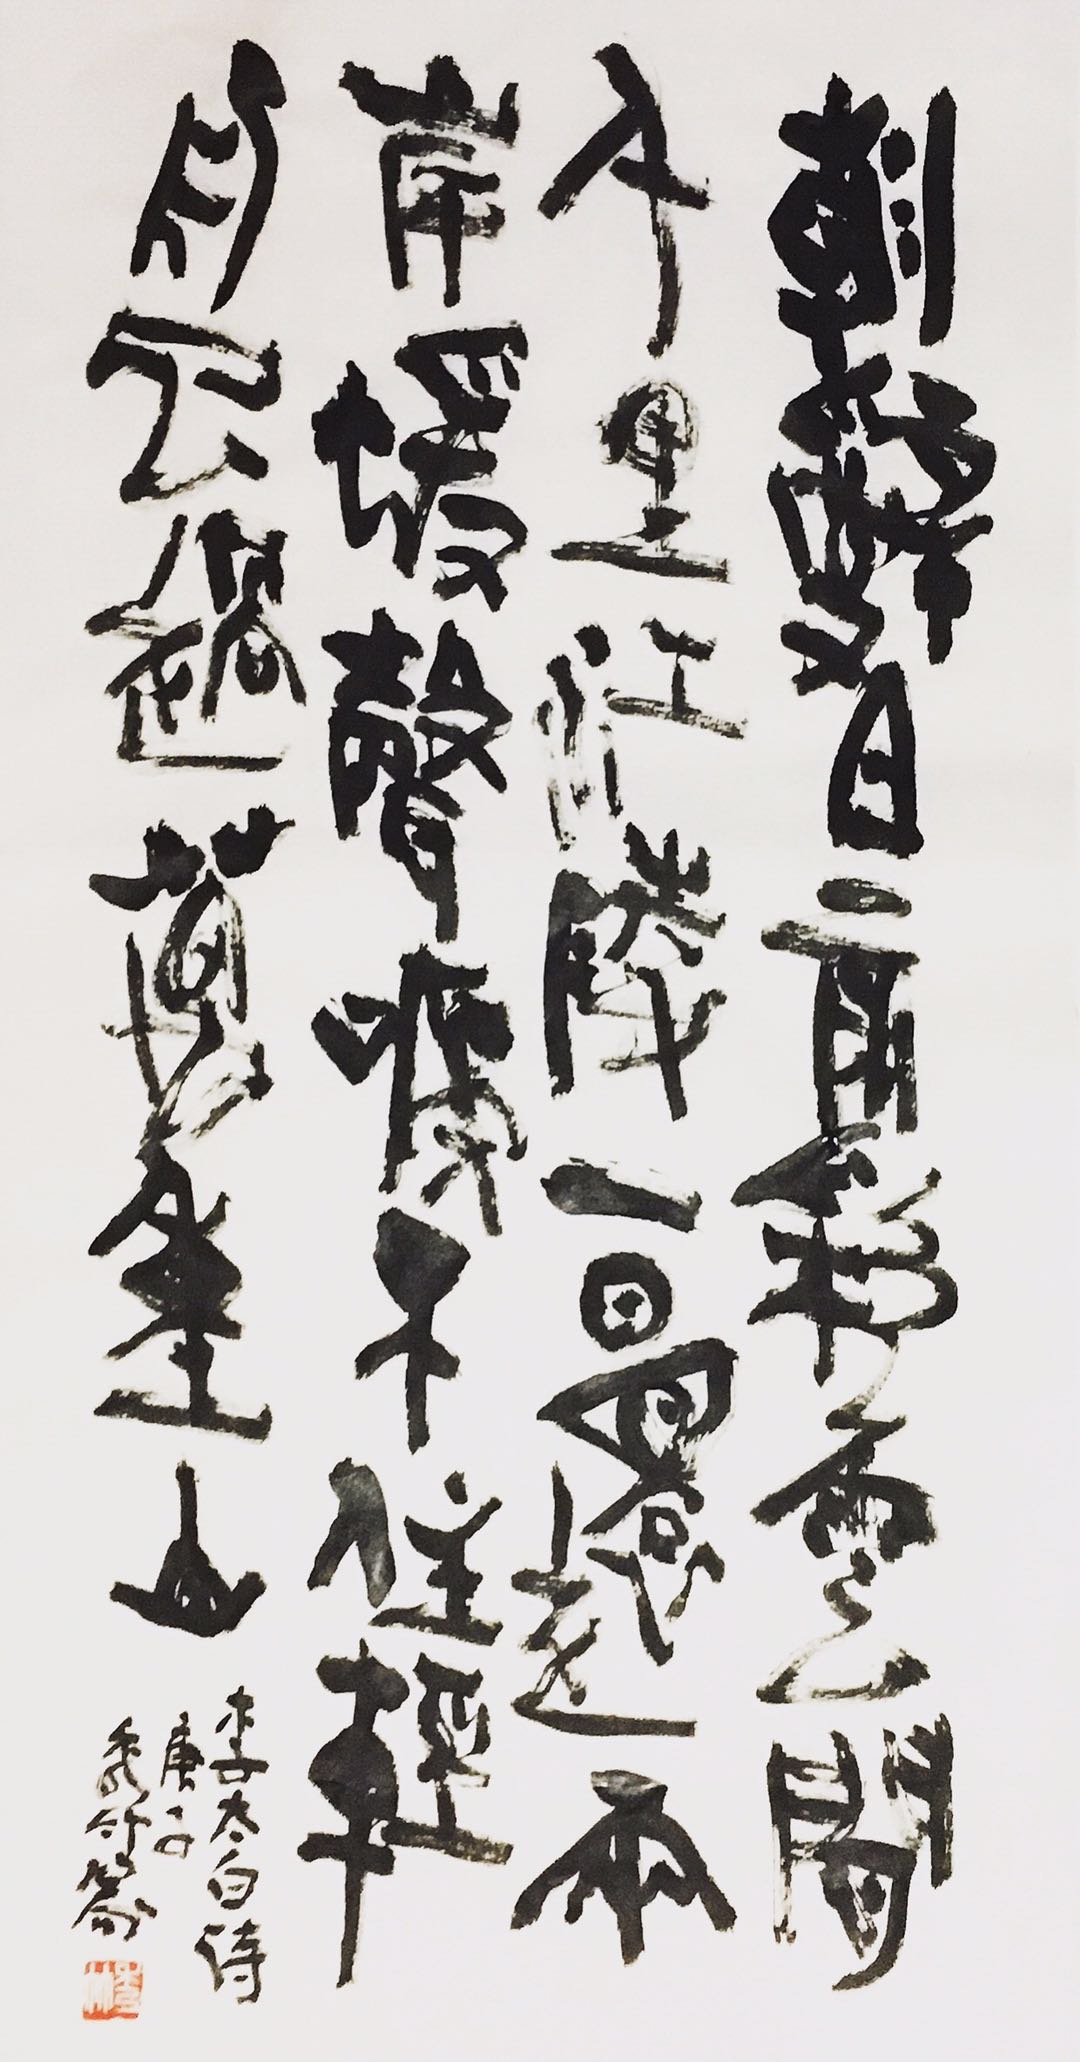 朝辭白帝彩雲間
千里江陵一日還兩
岸猨聲嗁不住輕
舟已過萬重山
李太白詩
庚子
秀竹篆